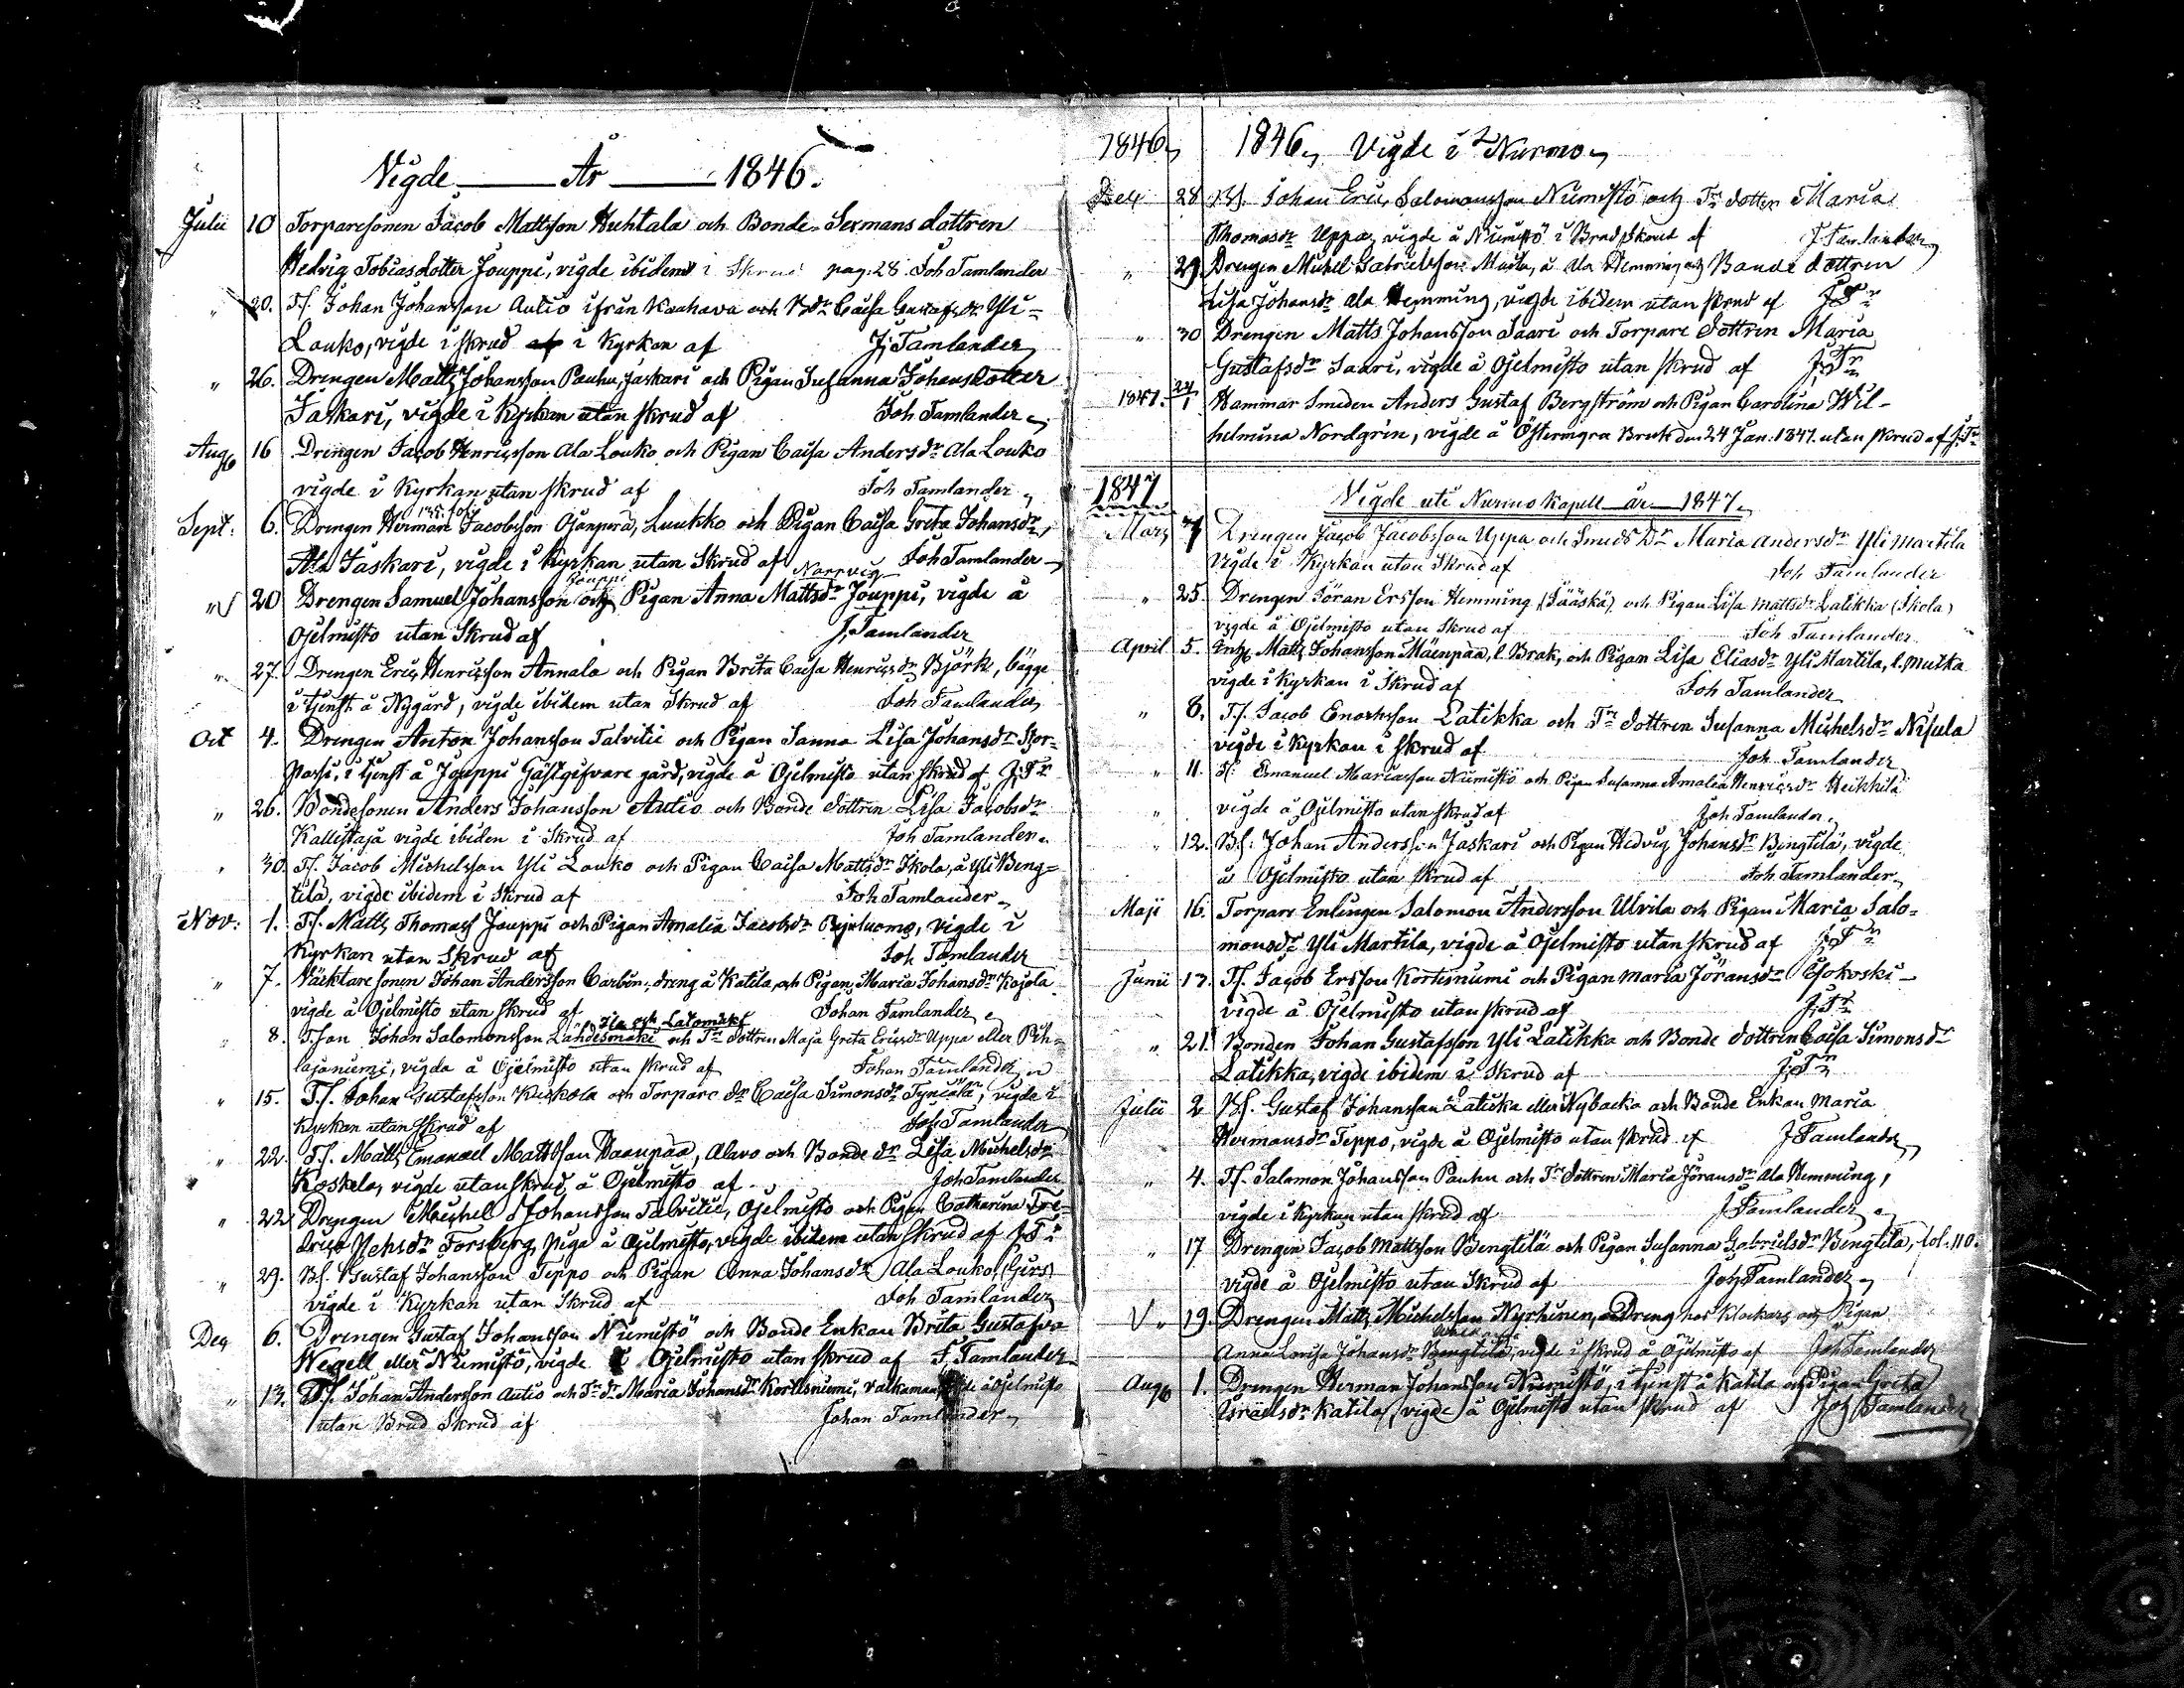 Vigde År 1846.
Julii 10 Torparesonen Jacob Mattsson Huhtala och Bonde-Sexmans dottren
Hedvig Tobiasdotter Jouppi, vigde ibidem i Skrud pag. 28. Joh Tamlander
" 20. Ts. Johan Johansson Autio ifrån Kauhava och Bdr Caisa Gustafsdr Yli=
Louko, vigde i skrud i Kyrkan af J: Tamlander
" 26. Drengen Matts Johansson Pauhu, Jaskari och Pigan Susanna Johansdotter
Jaskari, vigde i Kyrkan utan skrud af Joh Tamlander
Aug 16 Drengen Jacob Henricsson Ala Louko och Pigan Caisa Andersdr Ala Louko
vigde i Kyrkan utan skrud af Joh Tamlander
Sept: 6. Drengen Herman Jacobsson Ojanperä, Luukko och Pigan Caisa Greta Johansdr,
Ala Jaskari, vigde i Kyrkan utan Skrud af Joh Tamlander
Jouppi Norrvig
" 20 Drengen Samuel Johansson och Pigan Anna Mattsdr Jouppi, vigde å
Ojelmisto utan Skrud af J. Tamlander
" 27. Drengen Eric Henricsson Annala och Pigan Brita Caisa Henricsdr Björk, bägge
i tjenst å Nygård, vigde ibidem utan Skrud af Joh Tamlander
Oct 4. Drengen Anton Johansson Talvitie och Pigan Sanna Lisa Johansdr Stor-
Passi, i tjenst å Jouppi Gästgifvare gård, vigde å Ojelmisto utan skrud af J: Tr
" 26. Bondesonen Anders Johansson Autio och Bonde dottren Lisa Jacobsdr
Kallistaja vigde ibidem i Skrud af Joh Tamlander
" 30. Ts. Jacob Michelsson Yli Louko och Pigan Caisa Mattsdr Skola, å Yli Beng=
tilä, vigde ibidem i Skrud af Joh Tamlander
Nov: 1. Ts. Matts Thomass Jouppi och Pigan Amalia Jacobsdr vigde i
Kyrkan utan Skrud af Joh Tamlander
" 7. Väcktaresonen Johan Andersson Carbin, dreng å Katila, och Pigan Maria Johansdr Kojola
vigde å Ojelmisto utan skrud af Johan Tamlander
" 8. T.son Johan Salomonsson Lähdesmäki och Tr dottren Maja Greta Ericsdr Uppa eller Pih=
lajaniemi, vigda å Ojelmisto utan skrud af Johan Tamlander
" 15. T.s. Johan Gustafsson Kiskola och Torpare dr Caisa Simonsdr Tynjälä, vigde i
Kyrkan utan skrud af Joh Tamlander
" 22. T.s. Matts Emanuel Mattsson Haanpää, Alavo och Bonde dr Lisa Michelsdr
Koskela, vigde utan skrud å Ojelmisto af Joh Tamlander
" 22 Drengen Michel Johansson Talvitie, Ojelmisto och Pigan Catharina Fre-
drica Forsberg, Piga å Ojelmisto, vigde ibidem utan skrud af J: Tr
" 29. Bs. Gustaf Johansson Teppo och Pigan Anna Johansdr Ala Louko, (Girs)
vigde i Kyrkan utan Skrud af Joh Tamlander
Dec 6. Drengen Gustaf Johansson Niemistö och Bonde Enkan Brita Gustafva
Wegell eller Niemistö, vigde å Ojelmisto utan skrud af J. Tamlander
" 13. Ts. Johan Andersson Autio och Tr dr Maria Johansdr Kortesniemi, Valkaman å Ojelmisto
utan Brud Skrud af Johan Tamlander
1846 1846 Vigde i Nurmo
Dec 28 Bs. Johan Eric Salomonsson Niemistö och Tr dotter Maria
Thomasdr Uppa, vigde å Niemistö i Brud Skrud af J Tamlander
" 29 Drengen Michel Gabrielsson å Ala Hemming och Bonde dottren
Lisa Johansdr Ala Hemming, vigde ibidem utan skrud af J: Tr
" 30 Drengen Matts Johansson Saari och Torpare dottren Maria
Gustafsdr Saari, vigde å Ojelmisto utan skrud af J: Tr
1847. 24/1 Hammar Smeden Anders Gustaf Bergström och Pigan Carolina Wil-
helmina Nordgrin, vigde å Östermyra Bruk den 24 Jan: 1847. utan skrud af J: Tr
1847 Vigde uti Nurmo Kapell år 1847
Mars 7 Drengen Jacob Jacobsson Uppa och Smeds Dr Maria Andersdr Yli Martila
vigde i Kyrkan utan Skrud af Joh Tamlander
" 25. Drengen Jöran Ersson Hemming (Jääskä) och Pigan Lisa Mattsdr Latikka (Skola)
vigde å Ojelmisto utan Skrud af Joh Tamlander
April 5. Enkl Matts Johansson Mäenpää, l. Brak, och Pigan Lisa Eliasdr Yli Martila, l. Mutka
vigde i Kyrkan i Skrud af Joh Tamlander
" 6. T.s. Jacob Enochsson Latikka och Tr dottren Susanna Michelsdr Nisula
vigde i Kyrkan i skrud af Joh Tamlander
" 11. Ts: Emanuel Mariasson Niemistö och Pigan Susanna Amalia Henricsdr Heikkilä
vigde å Ojelmisto utan skrud af Joh Tamlander
" 12. Bs: Johan Andersson Jaskari och Pigan Hedvig Johansdr Bengtilä, vigde
å Ojelmisto utan skrud af Joh Tamlander
Maji 16. Torpare Enlingen Salomon Andersson Ulvila och Pigan Maria Salo=
monsdr Yli Martila, vigde å Ojelmisto utan skrud af J: Tr
Junii 13. Ts. Jacob Ersson Kortesniemi och Pigan Maria Jöransdr
vigde å Ojelmisto utan skrud af J: Tr
" 21. Bonden Johan Gustafsson Yli Latikka och Bonde dottren Caisa Simonsdr
Latikka, vigde ibidem i Skrud af J: Tr
Julii 2 Bs. Gustaf Johansson Laticka eller Nybacka och Bonde Enkan Maria
Hermansdr Teppo, vigde å Ojelmisto utan skrud af J Tamlander
" 4. Ts. Salomon Johansson Pauhu och Tr dottren Maria Jöransdr Ala Hemming,
vigde i Kyrkan utan skrud af J Tamlander
" 17 Drengen Jacob Mattsson Bengtilä och Pigan Susanna Gabrielsdr Bengtilä, fol. 110.
vigde å Ojelmisto utan Skrud af Joh Tamlander
V " 19. Drengen Matts Michelsson Nyrhinen, Dreng hos Klockars och Pigan
Anna Lovisa Johansdr Bengtilä, vigde i skrud å Ojelmisto af Joh Tamlander
Aug 1. Drengen Herman Johansson Niemistö, i tjenst å Katila och Pigan Greta
Israelsdr Katila, vigde å Ojelmisto utan skrud af Joh Tamlander